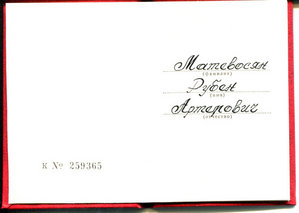 Матевосян
(фамилия)
Рубен
(имя)
Артемович
(отчество)
К № 259365